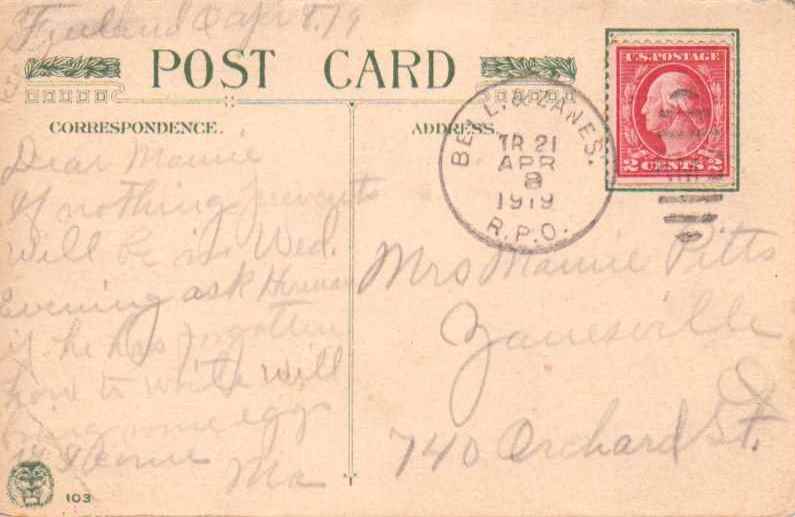 O Apr 8, 19
POST CARD
CORRESPONDENCE.
ADDRESS.
U.S. POSTAGE
2 CENTS 2
BELL. & ZANES.
TR 21
APR
8
1919
R.P.O.
Dear Mamie
If nothing prevents
will be in Wed.
Evening ask Herman
if he has forgotten
how to write will
bring some eggs
Ma
Mrs Mamie Pitts
Zanesville
O
740 Orchard St.
103